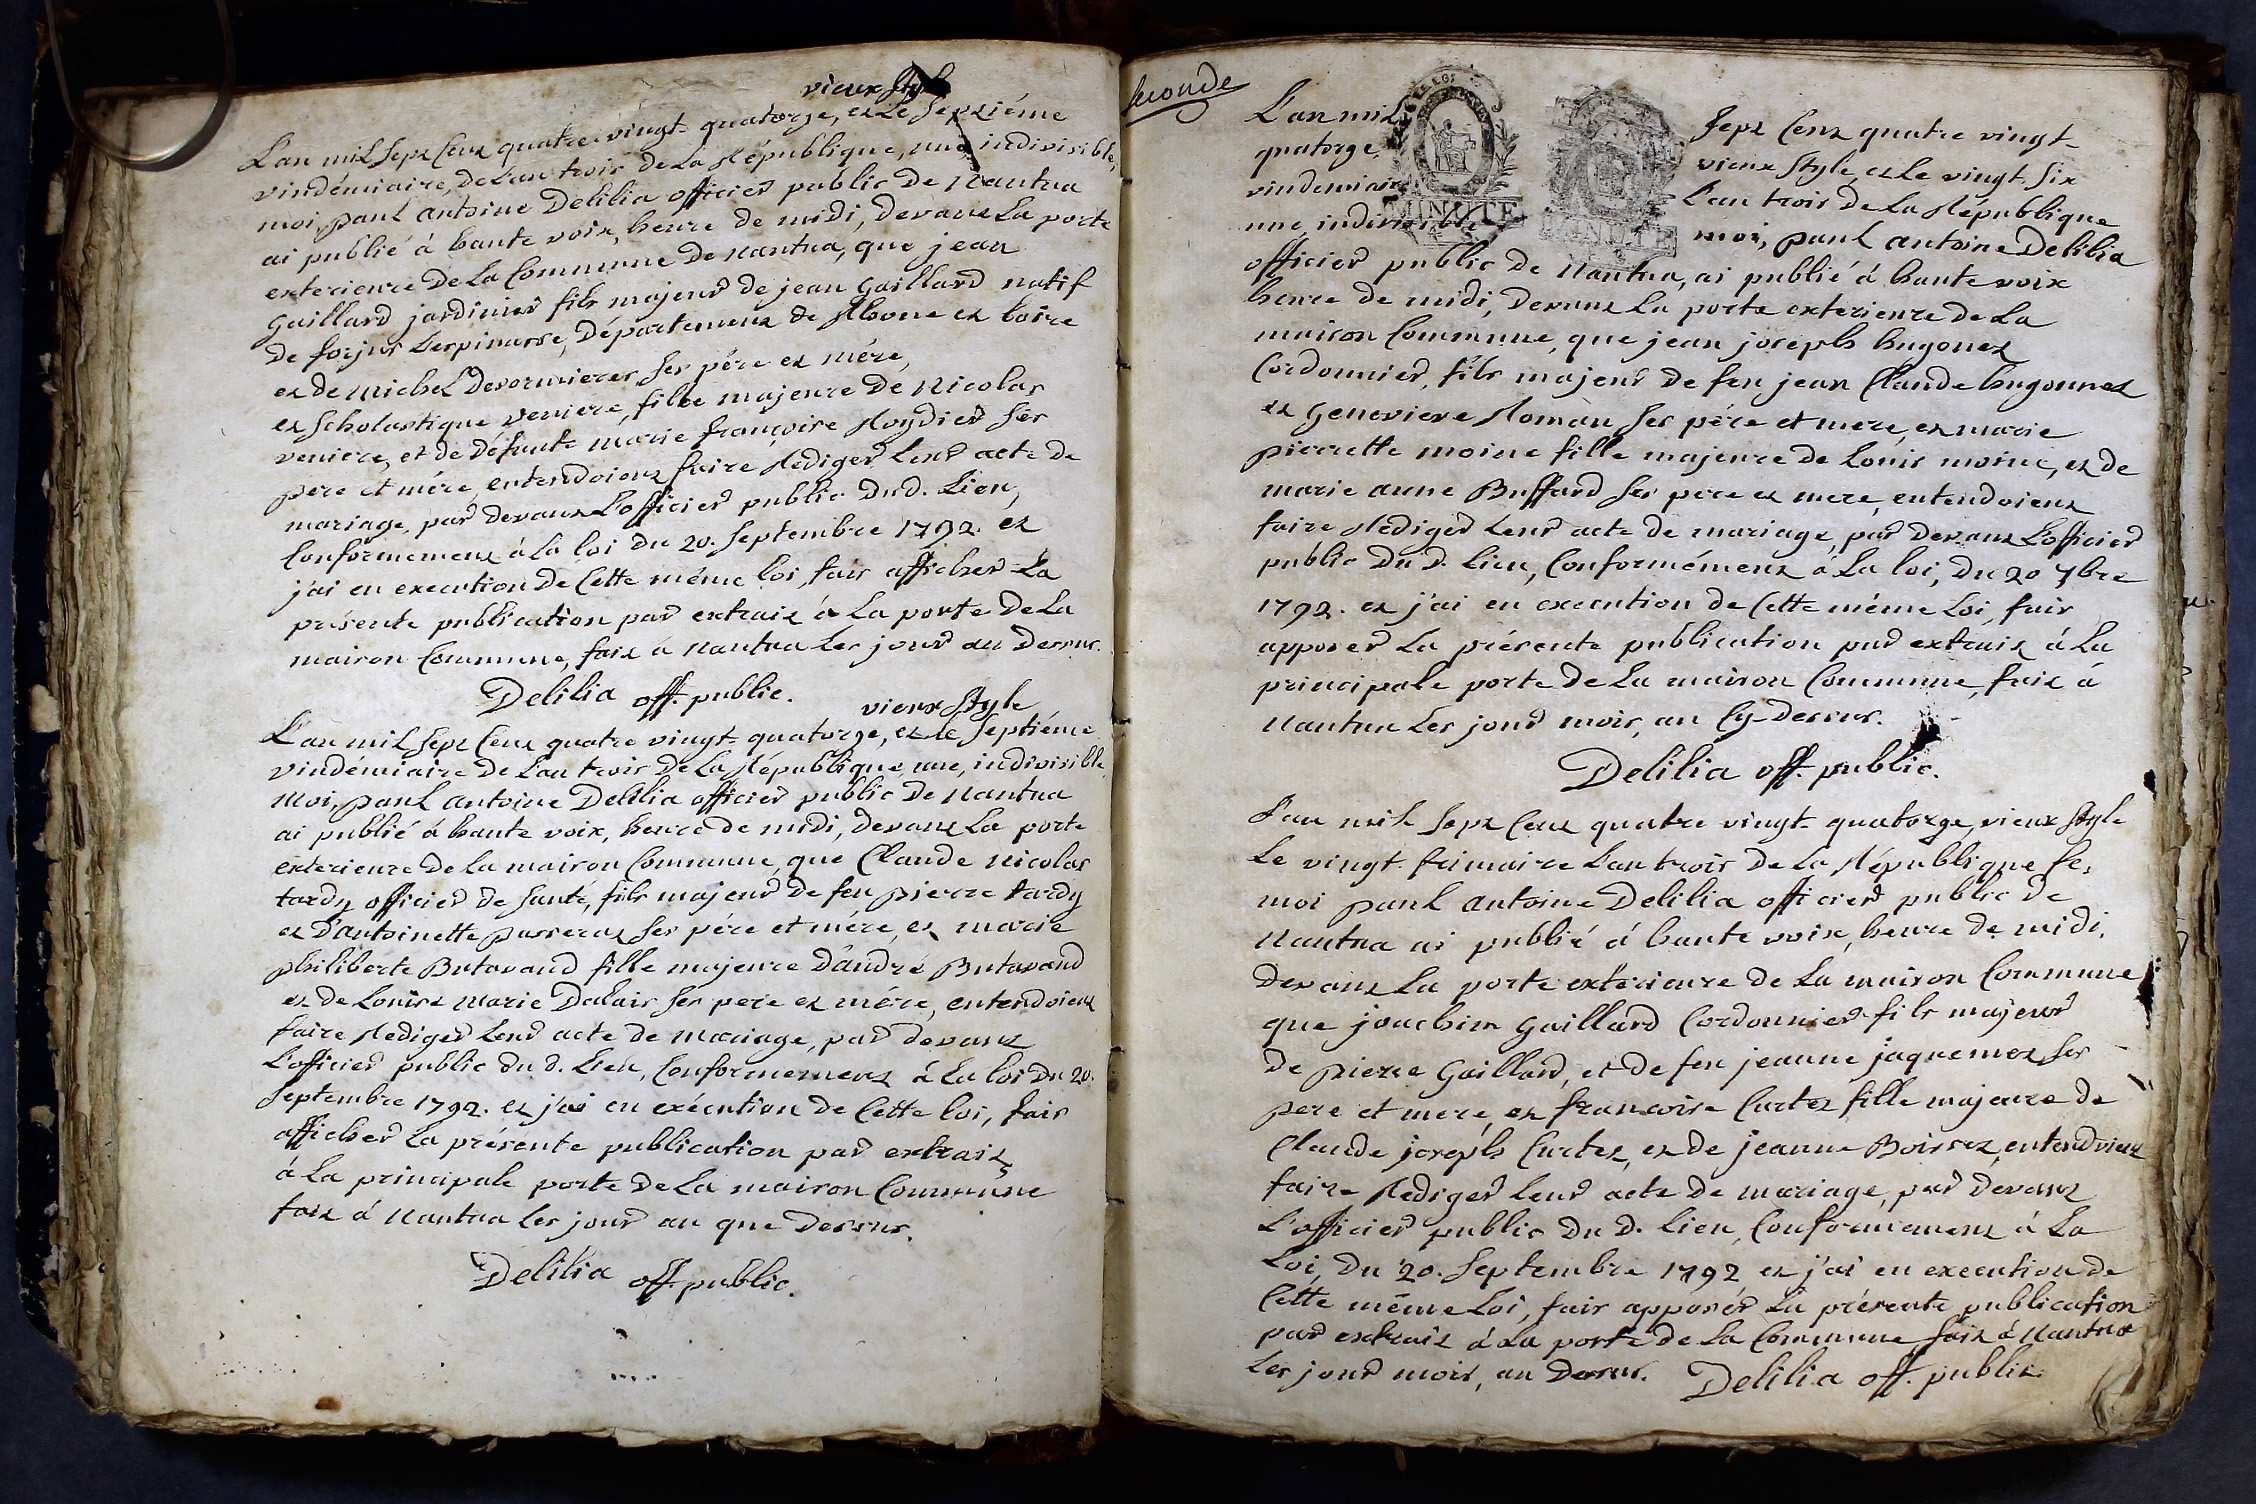 vieux Style
L'an mil sept cent quatre vingt quatorze, et le septiéme
vindémiaire, de L'an trois de La République, une indivisible,
moi, paul antoine Delilia officier public de Nantua
ai publié à haute voix, heure de midi, devant La porte
exterieure de La Commune de nantua, que jean
Gaillard jardinier fils majeur de jean Gaillard natif
de forjur Lespinasse, Département de Rhone et Loire
et de michel Devormieres ses pére et mére,
et scholastique veniere, fille majeure de Nicolas
veniere, et de Défunte marie françoise Roydier ses
pere et mére, entendoient faire Rediger Leur acte de
mariage, par devant L'officier public Dud. Lieu,
Conformement à La loi du 20. Septembre 1792. et
j'ai en execution de Cette même loi, fait afficher La
présente publication par extrait à La porte de La
maison Commune, fait à nantua Les jour an Dessus.
Delilia off. public.
vieux Style
L'an mil sept cent quatre vingt quatorze, et le septiéme
vindémiaire de L'an trois de La République, une, indivisible,
moi, paul antoine Delilia officier public de nantua
ai publié à haute voix, heure de midi, devant La porte
exterieure de La maison Commune, que Claude nicolas
tardy officier de santé, fils majeur de feu pierre tardy
et D'antoinette passerat ses pére et mére, et marie
philiberte Butavand fille majeure D'andré Butavand
et de Louise marie Dalais ses pere et mére, entendoient
faire Rediger Leur acte de mariage, par devant
L'officier public du d. Lieu, Conformement à La loi Du 20.
Septembre 1792. et j'ai en exécution de Cette loi, fait
afficher La présente publication par extrait,
à La principale porte de La maison Commune
fait à nantua Les jour an que Dessus.
Delilia off. public.
seconde
L'an mil sept cent quatre vingt
quatorze, vieux Style, et le vingt six
vindemiaire L'an trois de La République
une, indivisible moi, paul antoine Delilia
officier public de nantua, ai publié à haute voix
heure de midi, Devant La porte exterieure de La
maison Commune, que jean joseph hugonet
Cordonnier, fils majeur de feu jean Claude hugonnet
et Genevieve Roman ses pére et mere, et marie
pierrette moine fille majeure de Louis moine, et de
marie anne Buffard ses pere et mere, entendoient
faire Rediger Leur acte de mariage, par Devant L'officier
public Du d. Lieu, Conformément à La loi, Du 20 7bre
1792. et j'ai en execution de Cette même Loi, fait
apposer La présente publication par extrait à La
principale porte de La maison Commune, fait à
nantua Les jour mois, an Cy-Dessus.
Delilia off. public.
L'an mil sept cent quatre vingt quatorze, vieux Style
Le vingt frimaire L'an trois de La République fe,
moi paul antoine Delilia officier public de
Nantua ai publié à haute voix, heure de midi,
devant La porte exterieure de La maison Commune
que joachim Gaillard Cordonnier fils majeur
de pierre Gaillard, et de feu jeanne jaquemet ses
pere et mere, et francoise Curtet fille majeure de
Claude joseph Curtet, et de jeanne Boisset, entendoient
faire Rediger leur acte de mariage, par devant
L'officier public Du d. Lieu, Conformement à La
Loi, Du 20. Septembre 1792 et j'ai en execution de
Cette même Loi, fait apposér La présente publication
par extrait à La porte de La Commune, fait à Nantua
Les jour mois, an Dessus. Delilia off. public.
MINUTE
MINUTE